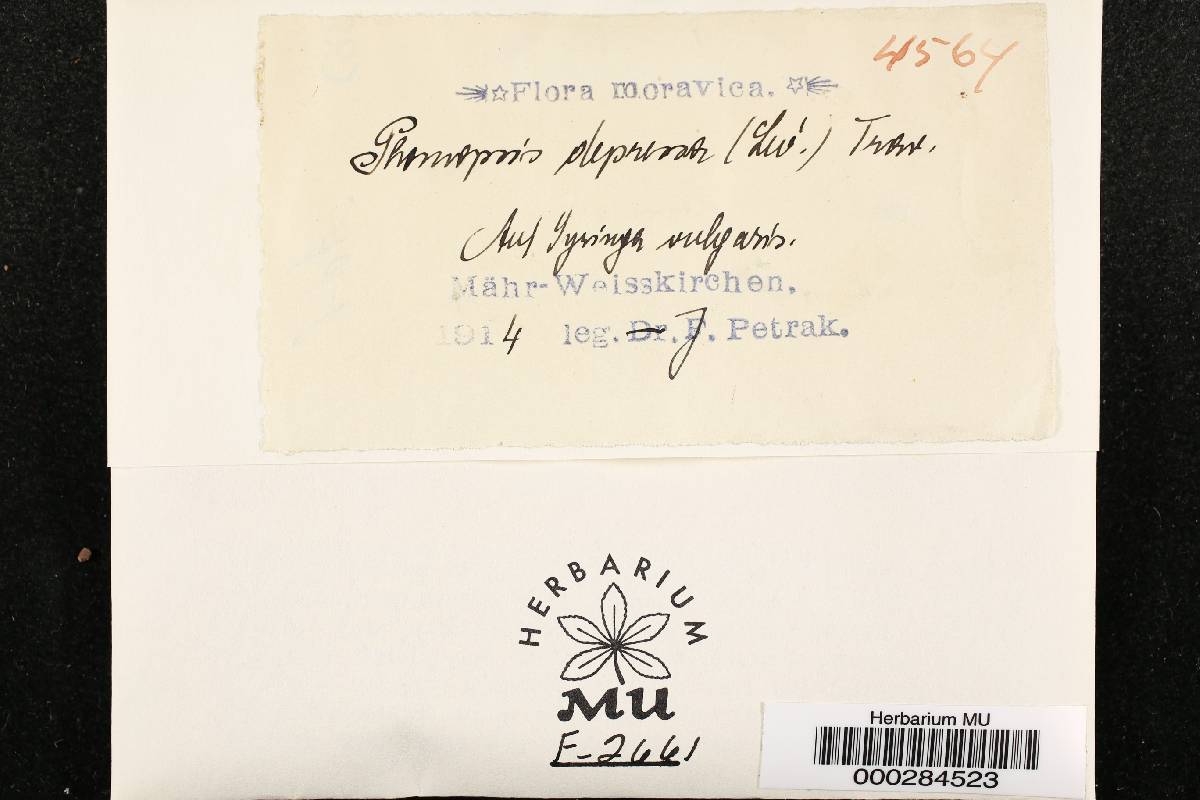 4564
Flora moravica.
Phomopsis depressa (Lév.) Trav.
Auf Syringa vulgaris.
Mähr-Weisskirchen.
1914 leg. Dr. J. Petrak.
HERBARIUM
MU
F-2661
Herbarium MU
000284523